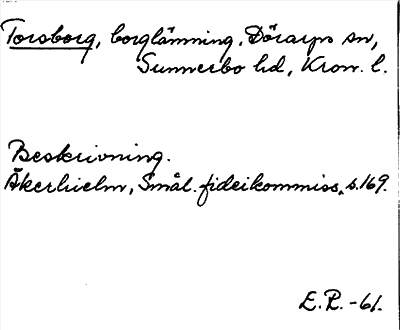 Torsborg, borglämning. Dörarps sn,
Sunnerbo hd, Kron. l.
Beskrivning.
Åkerhielm, Smål. fideikommiss, s.169.
E.P. -61.